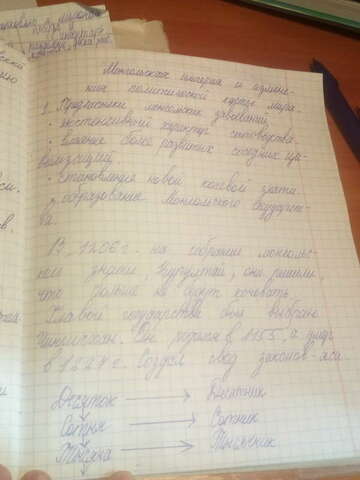 Монгольская империя и измене-
ние политической карты мира.
1. Предпосылки монгольских завоеваний
• экстенсивный характер скотоводства.
• влияние более развитых соседних ци-
вилизаций.
• становления новой кочевой знати.
• образование Монгольского государст-
ва.
В 1206 г. на собрании монголь-
ской знати, Курултай, они решили,
что больше не будут кочевать.
Главой государства был выбран
Чингисхан. Он родился в 1155, а умер
в 1227 г. Создал свод законов-яса
Десяток → Десятник
Сотня → Сотник
Тысяча → Тысячник